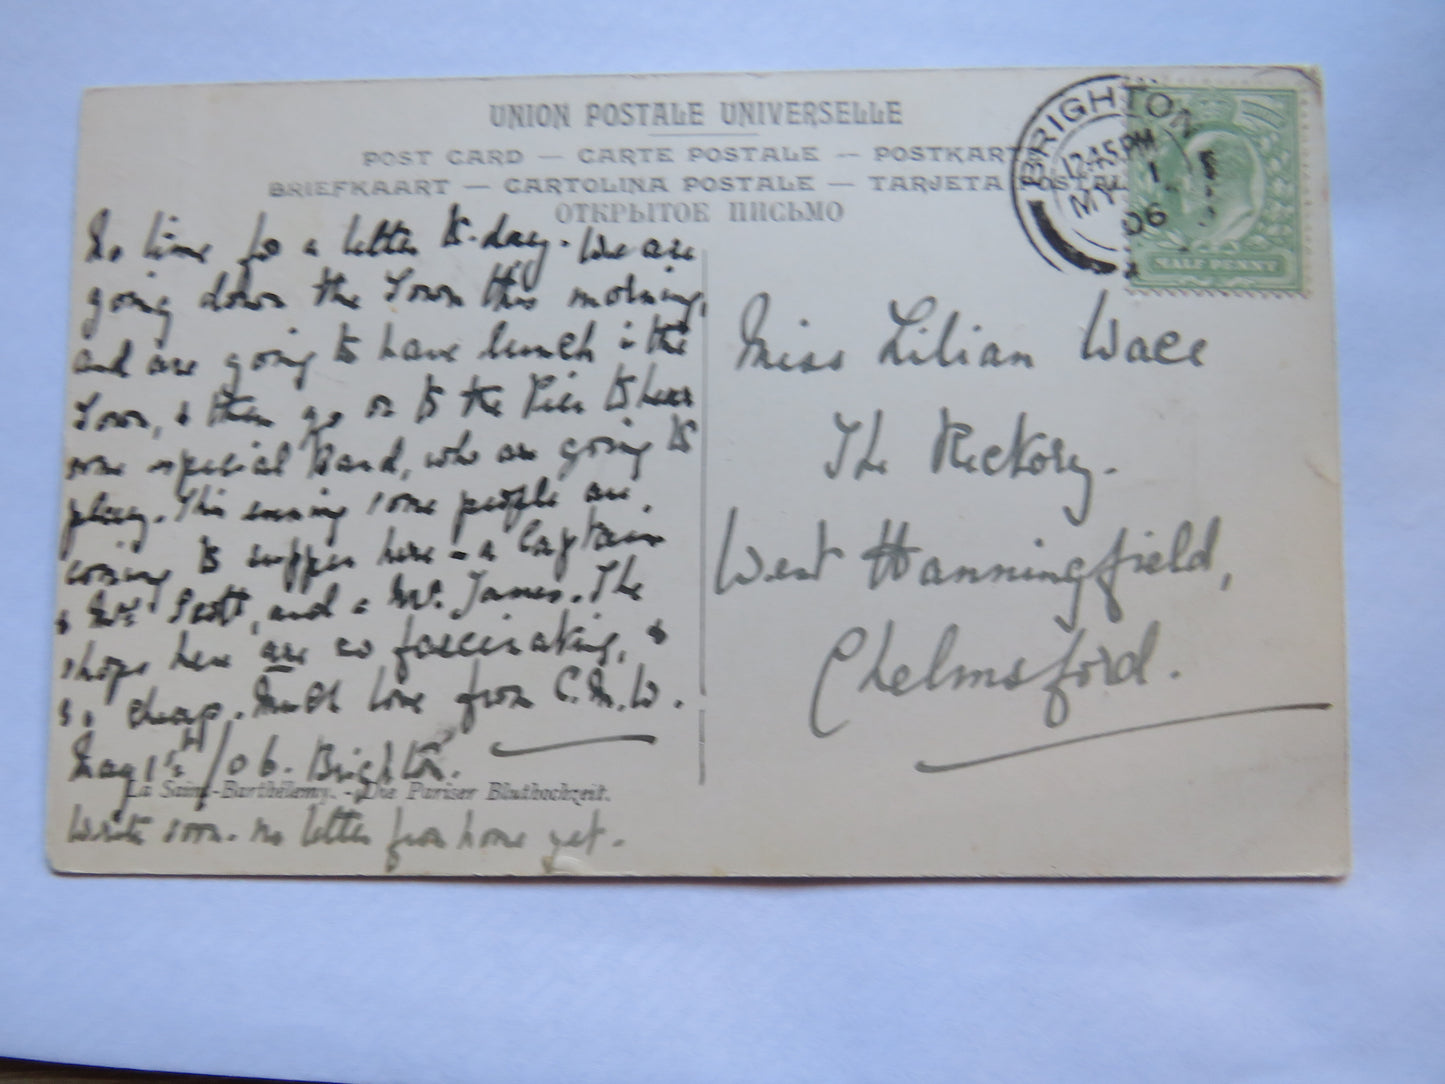 UNION POSTALE UNIVERSELLE
POST CARD — CARTE POSTALE — POSTKART
BRIEFKAART — CARTOLINA POSTALE — TARJETA POSTAL
ОТКРЫТОЕ ПИСЬМО
BRIGHTON
12.45 PM
MY 1
06
HALF PENNY
No time for a letter to-day. We are
going down the Town this morning,
and are going to have lunch in the
Town, & then go on to the Pier to hear
some special Band, who are going to
play. This evening some people are
coming to supper here - a Captain
& Mrs Scott, and a Mr. James. The
shops here are so fascinating, &
so cheap. Much love from C.M.W.
May 1st/06. Brighton.
La Saint-Barthélemy. - Die Pariser Bluthochzeit.
Write soon. no letter from home yet.
Miss Lilian Wace
The Rectory.
West Hanningfield,
Chelmsford.